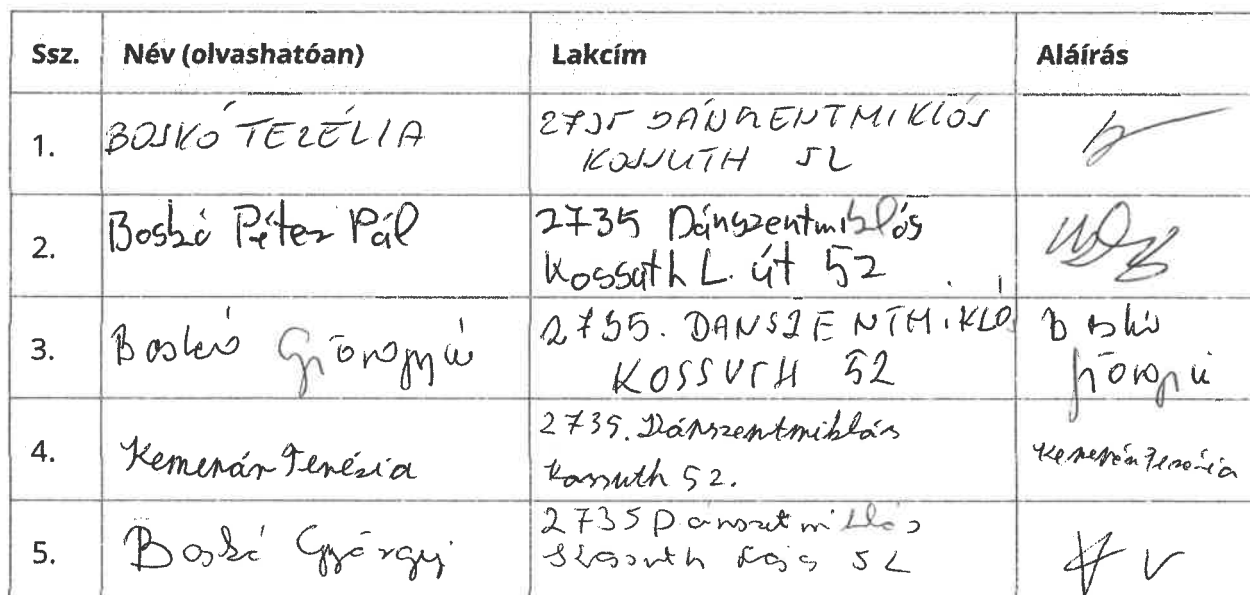 Ssz. Név (olvashatóan) Lakcím Aláírás
1. BOSKÓ TERÉLIA 2735 DÁNSZENTMIKLÓS
KOSSUTH 52
2. Boskó Péter Pál 2735 Dánszentmiklós
Kossuth L. út 52
3. Boskó Györgyné 2735. DANSZENTMIKLÓS Boskó
KOSSUTH 52 Györgyné
4. Kemenár Terézia 2735. Dánszentmiklós Kemenár Terézia
Kossuth 52.
5. Boskó György 2735 Dánszetmiklós
Kossuth Lajos 52